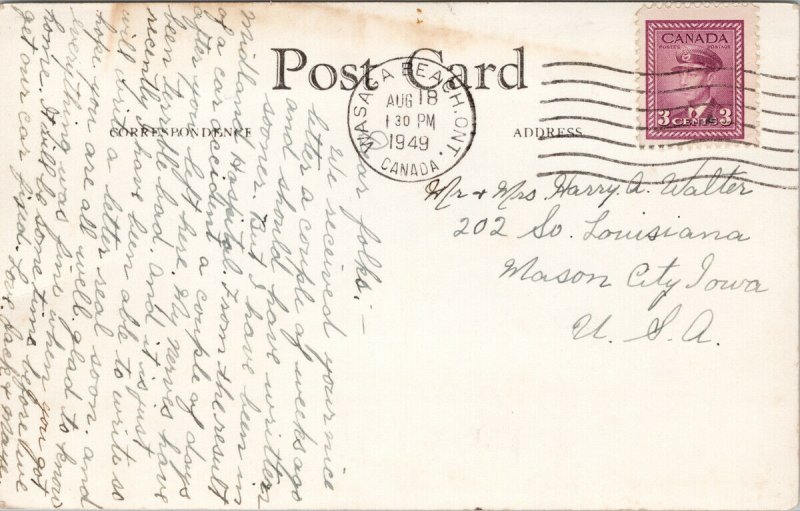 Post Card
CORRESPONDENCE
ADDRESS
WASAGA BEACH. ONT.
AUG 18
1 30 PM
1949
CANADA
CANADA
POSTES POSTAGE
3 CENTS 3
Mr + Mrs Harry A. Walter
202 So. Louisiana
Mason City Iowa
U. S. A.
Dear folks:-
We received your nice
letter a couple of weeks ago
and should have written
sooner. But I have been in
Midland Hospital from the result
of a car accident a couple of days
after you left here. My nerves have
been terrible bad. and it is just
recently I have been able to write so
will write a letter real soon. and
hope you are all well. glad to know
everything was fine when you got
home. It will be some time before we
get our car fixed. Love. Jack +